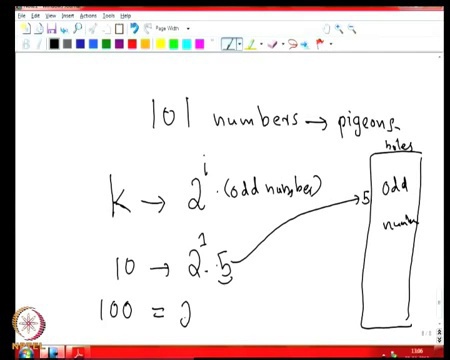 File Edit View Insert Actions Tools Help
Page Width
101 numbers → pigeons
holes
K → 2^i · (odd number)
5 odd
10 → 2^1 · 5
100 = 2
13:08